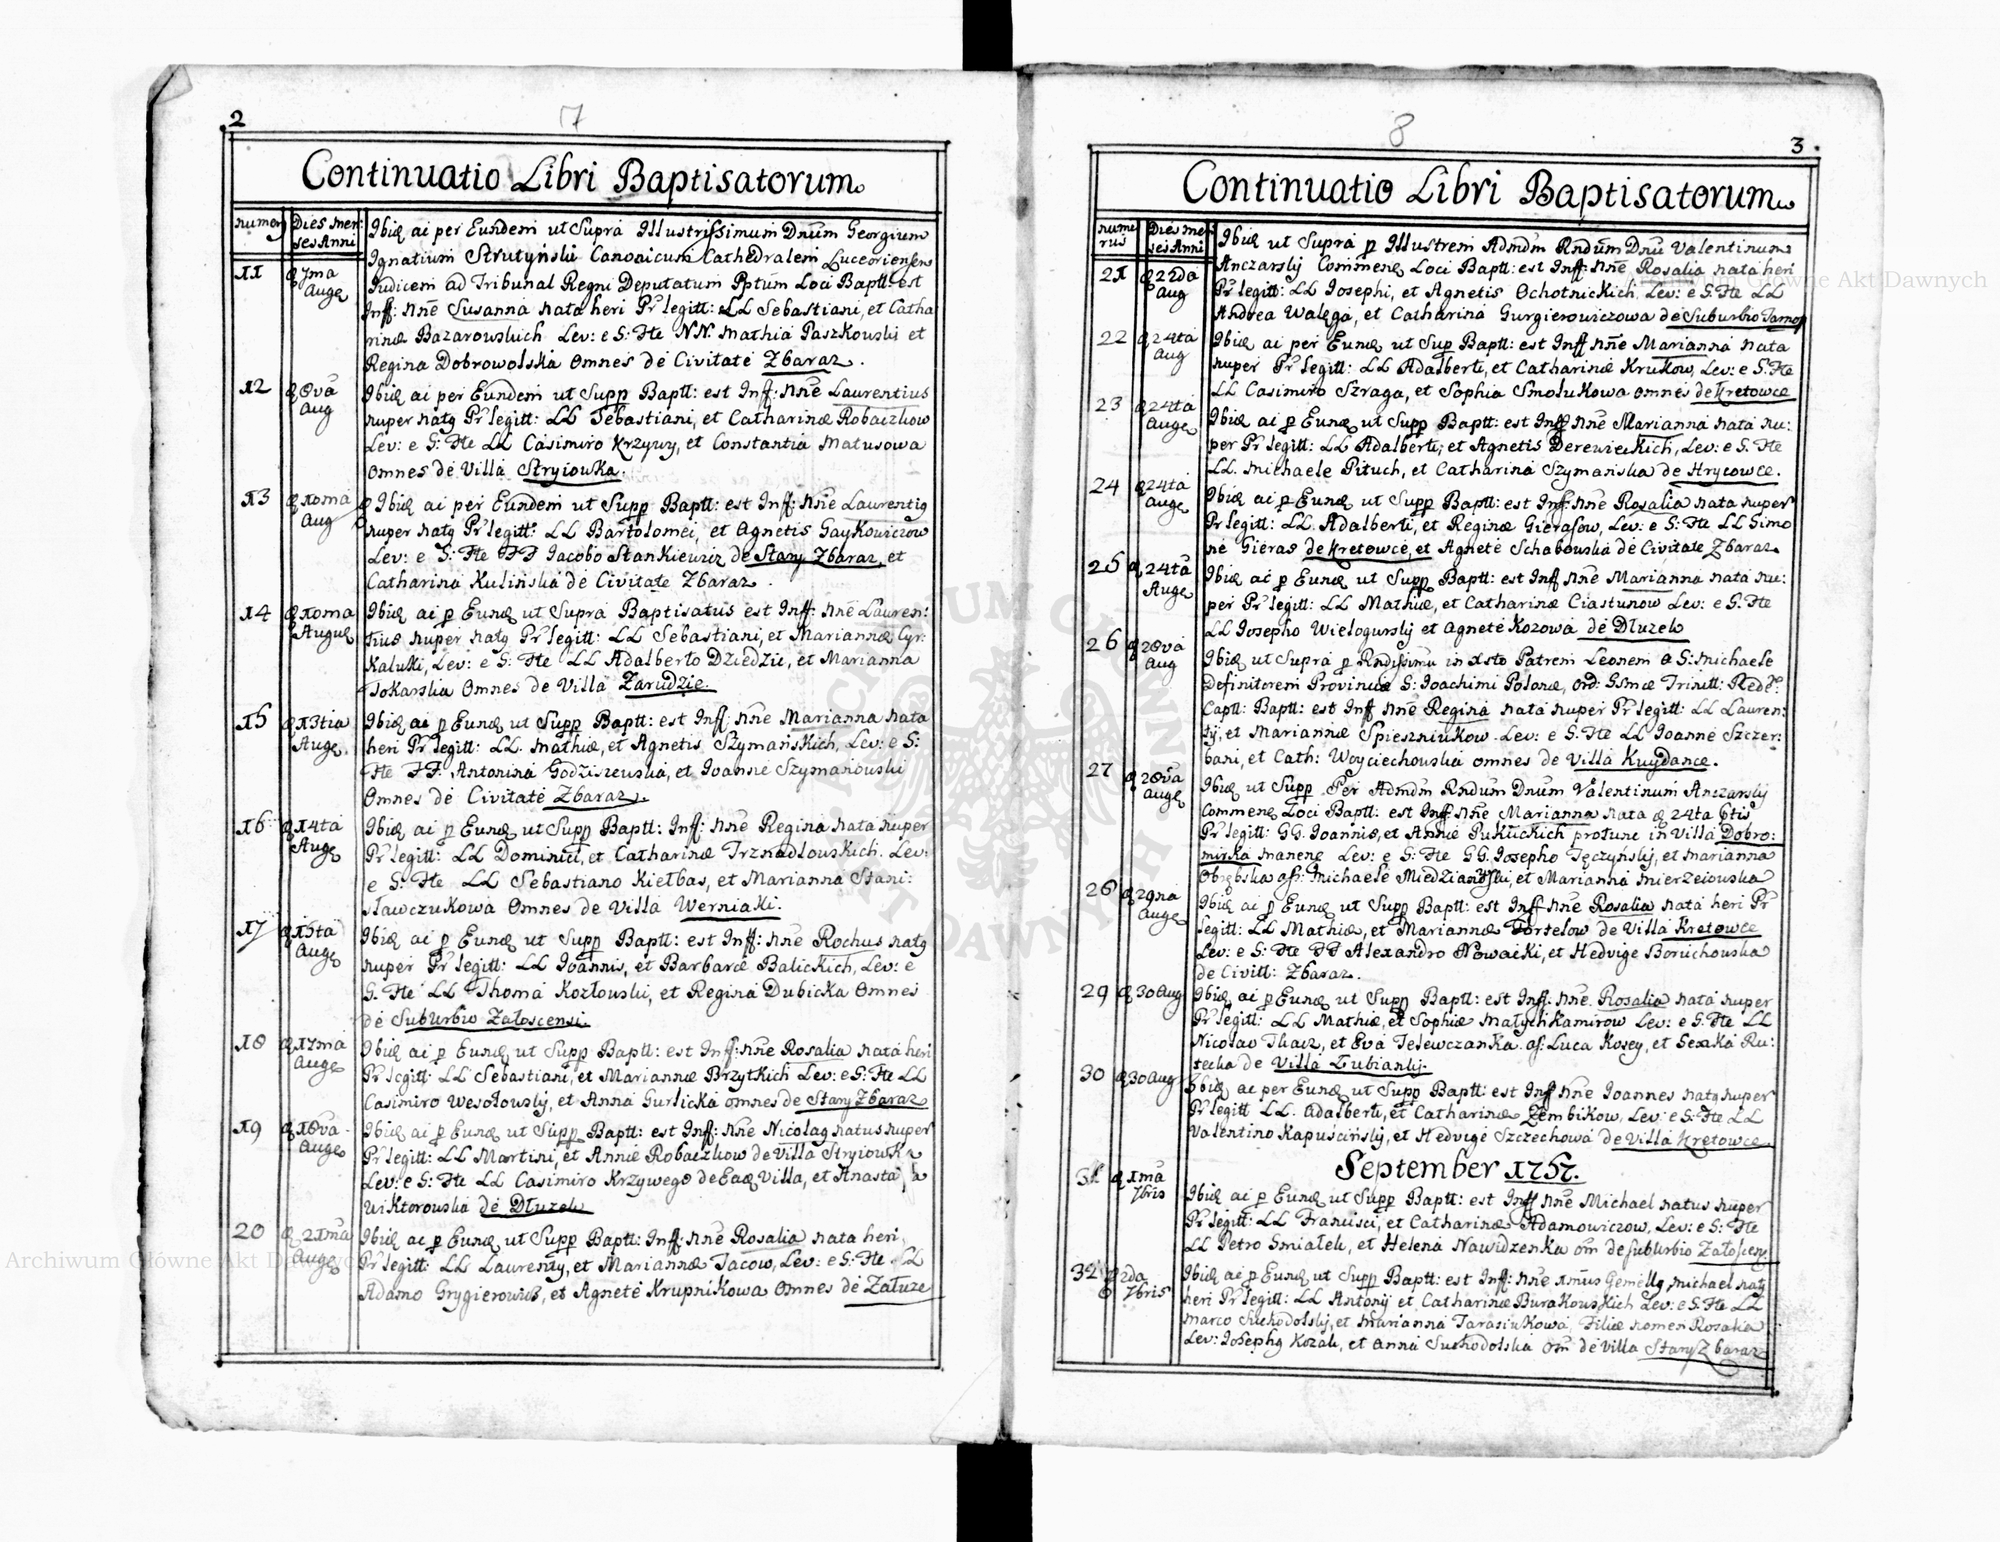 2
7
Continuatio Libri Baptisatorum
numerg
Dies men:
ses Anni
Ibide ai per Eundem ut Supra Illustrissimum Dnum Georgium
Ignatium Strutyński Canonicum Cathedralem Luceoriensem
11
7ma
Auge
Iudicem ad Tribunal Regni Deputatum Pptum Loci Baptt: est
Inff: Nne Susanna nata heri Pr legitt: LL Sebastiani, et Catha
rinæ Bazarowskich Lev: e S: Fte NN. Mathia Paszkowski et
Regina Dobrowolska Omnes de Civitate Zbaraz.
12
8va
Aug
Ibide ai per Eundem ut Supp Baptt: est Inff: Nne Laurentius
nuper natg Pr legitt: LL Sebastiani, et Catharinæ Robaczkow
Lev: e S: Fte LL Casimiro Krzywy, et Constantia Matusowa
Omnes de Villa Stryiowka.
13
10ma
Aug
Ibide ai per Eundem ut Supp Baptt: est Inff: Nne Laurentig
nuper natg Pr legitt: LL Bartolomei, et Agnetis Gaykowiczow
Lev: e S: Fte FF Iacobo Stankiewicz de Stary Zbaraz, et
Catharina Kulińska de Civitate Zbaraz.
14
10ma
Auguę
Ibide ai p Eunde ut Supra Baptisatus est Inff: Nne Lauren:
tius nuper natg Pr legitt: LL Sebastiani, et Mariannæ Cyr:
Kaluki, Lev: e S: Fte LL Adalberto Dziedzic, et Marianna
Tokarska Omnes de Villa Zarudzie.
15
13tia
Auge
Ibide ai p Eunde ut Supp Baptt: est Inff: Nne Marianna nata
heri Pr legitt: LL. Mathiæ, et Agnetis Szymańskich, Lev: e S:
Fte FF. Antonina Godziszewska, et Ioanne Szymanowski
Omnes de Civitate Zbaraz.
16
14ta
Auge
Ibide ai p Eunde ut Supp Baptt: Inff: Nne Regina nata nuper
Pr legitt: LL Dominici, et Catharinæ Trznadlowskich. Lev:
e S: Fte LL Sebastiano Kiełbas, et Marianna Stani:
sławczukowa Omnes de Villa Werniaki.
17
15ta
Auge
Ibide ai p Eunde ut Supp Baptt: est Inff: Nne Rochus natg
nuper Pr legitt: LL Ioannis, et Barbaræ Balickich, Lev: e
S. Fte LL Thoma Kozłowski, et Regina Dubicka Omnes
de Suburbio Załoscensi
18
17ma
Auge
Ibide ai p Eunde ut Supp Baptt: est Inff: Nne Rosalia nata heri
Pr legitt: LL Sebastiani, et Mariannæ Brzytkich Lev: e S: Fte LL
Casimiro Wesołowsky, et Anna Gurlicka omnes de Stary Zbaraz
19
18va
Auge
Ibide ai p Eunde ut Supp Baptt: est Inff: Nne Nicolag natus nuper
Pr legitt: LL Martini, et Annæ Robaczkow de Villa Stryiowka
Lev: e S: Fte LL Casimiro Krzywego de Eade Villa, et
Wiktorowska de Dłuzek
20
21ma
Auge
Ibide ai p Eunde ut Supp Baptt: Inff: Nne Rosalia nata heri,
Pr legitt: LL Laurenty, et Mariannæ Iacow, Lev: e S: Fte LL
Adamo Grygierowicz, et Agnete Krupnikowa Omnes de Załuze
8
3.
Continuatio Libri Baptisatorum
nume
rus
Dies men
ses Anni
21
22da
Aug
Ibide ut Supra p Illustrem Admdm Rndum Dnu Valentinum
Anczarsky Commene Loci Baptt: est Inff: Nne Rosalia nata heri
Pr legitt: LL Iosephi, et Agnetis Ochotnickich, Lev: e S: Fte LL
Andrea Walęga, et Catharina Gurgierowiczowa de Suburbio Tarnop
22
24ta
Aug
Ibide ai per Eunde ut Sup Baptt: est Inff Nne Marianna nata
nuper Pr legitt: LL Adalberti, et Catharinæ Krukow, Lev: e S: Fte
LL Casimiro Szraga, et Sophia Smolukowa omnes de Kretowce
23
24ta
Auge
Ibide ai p Eunde ut Supp Baptt: est Inff Nne Marianna nata nu:
per Pr legitt: LL Adalberti, et Agnetis Derewieckich, Lev: e S: Fte
LL. Michaele Pituch, et Catharina Szymańska de Hrycowce.
24
24ta
Auge
Ibide ai p Eunde ut Supp Baptt: est Inff: Nne Rosalia nata nuper
Pr legitt: LL. Adalberti, et Reginæ Gierasow, Lev: e S: Fte LL Simo
ne Gieras de Kretowce, et Agnete Schabowska de Civitate Zbaraz
25
24ta
Auge
Ibide ai p Eunde ut Supp Baptt: est Inff Nne Marianna nata nu:
per Pr legitt: LL Mathiæ, et Catharinæ Ciastunow Lev: e S: Fte
LL Iosepho Wielogursky et Agnete Kozowa de Dłuzek
26
28va
Aug
Ibide ut Supra p Rndissimu in Xsto Patrem Leonem a S: Michaele
Definitorem Provinciæ S: Ioachimi Polonæ, Ord: Ssmæ Trinitt: Rede:
Captt: Baptt: est Inff Nne Regina nata nuper Pr legitt: LL Lauren:
ty, et Mariannæ Spieszniukow Lev: e S: Fte LL Ioanne Szczer:
bani, et Cath: Woyciechowska omnes de Villa Kuydance.
27
28va
Auge
Ibide ut Supp Per Admdm Rndum Dnum Valentinum Anczarsky
Commene Loci Baptt: est Inff: Nne Marianna nata 24ta
Pr legitt: GG. Ioannis, et Annæ Puklickich protunc in Villa Dobro:
mirka manene Lev: e S: Fte GG. Iosepho Tęczyńsky, et Marianna
Obrębska ass: Michaele Miedzianowski, et Marianna Mierzeiowska
28
29na
Auge
Ibide ai p Eunde ut Supp Baptt: est Inff Nne Rosalia nata heri Pr
legitt: LL Mathiæ, et Mariannæ Fortelow de Villa Kretowce
Lev: e S: Fte FF Alexandro Nowacki, et Hedvige Boruchowska
de Civitt: Zbaraz.
29
30 Aug
Ibide ai p Eunde ut Supp Baptt: est Inff: Nne. Rosalia nata nuper
Pr legitt: LL Mathiæ, et Sophiæ Małychkamirow Lev: e S: Fte LL
Nicolao Tkacz, et Eva Telewczanka. ass: Luca Kosey, et Sexka Ru:
tecka de Villa Łubianky.
30
30 Aug
Ibide ai per Eunde ut Supp Baptt: est Inff Nne Ioannes natg nuper
Pr legitt LL. Adalberti, et Catharinæ Zembikow, Lev: e S: Fte LL
Valentino Kapuścińsky, et Hedvige Szczechowa de Villa Kretowce
September 1757.
31
1ma
7bris
Ibide ai p Eunde ut Supp Baptt: est Inff Nne Michael natus nuper
Pr legitt: LL Francisci, et Catharinæ Adamowiczow, Lev: e S: Fte
LL Petro Smiałek, et Helena Nawidzenka om de Suburbio Załoscen:
32
2da
7bris
Ibide ai p Eunde ut Supp Baptt: est Inff: Nne 1mus Gemellg Michael natg
heri Pr legitt: LL Antonij et Catharinæ Burakowskich Lev: e S: Fte LL
Marco Suchodolsky, et Marianna Tarasiukowa, Filiæ nomen Rosalia
Lev: Iosephg Kozak, et Anna Suchodolska Om de Villa Stary Zbaraz
Archiwum Główne Akt Dawnych
Archiwum Główne Akt Dawnych
ARCHIWUM GŁÓWNE AKT DAWNYCH